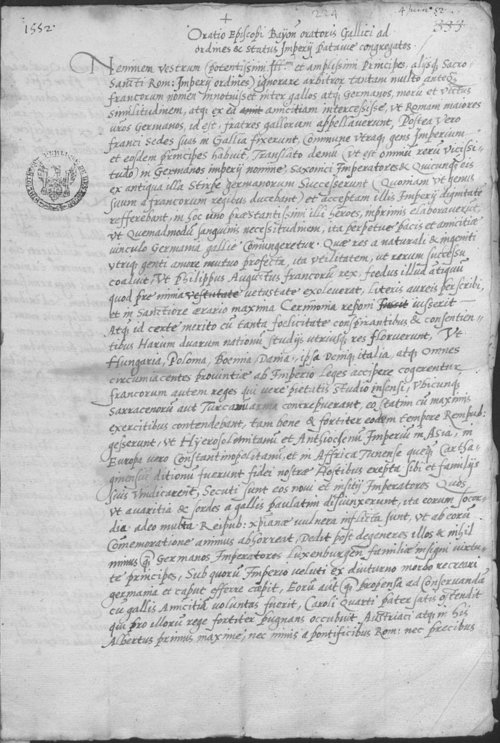 1552.
+
224
333
Oratio Episcopi Baion oratoris Gallici ad
ordines & status Imperij Patauie congregatos
Neminem vestrum (potentissimi Ill.mi et amplissimi Principes, alijsq Sacro-
Sancti Rom: Imperij ordines) ignorare arbitror tantam multo antea
francorum nomen innotuisset inter gallos atq Germanos, moru et victus
similitudinem, atq ex ea amicitiam intercessisse, vt Romani maiores
vros Germanos, id est, fratres gallorum appellauerunt, Postea vero
franci Sedes suas in Gallia fixerunt. Commune vtraq gens Imperium
et eosdem principes habuit, Translato demu (vt est omniu reru vicissi-
tudo) in Germanos imperij nomine, Saxonici Imperatores & Quicunq eis
ex antiqua illa Stirpe germanorum Successerunt (Quoniam vt genus
suum a francorum regibus ducebant) et acceptam illis Imperij dignitate
refferebant, in hoc vno praestantissimi illi heroes, inprimis elaborauerut
vt Quemadmodu sanguinis necessitudinem, ita perpetuae pacis et amicitiae
vinculo Germania galliae Coniungeretur. Quae res a naturale & ingeniti
vtriq genti amore mutuo profecta, ita vtilitatem, vt rerum successu
coaluit, Vt Philippus Augustus francoru rex, foedus illud antiquu
quod prae nimia vetustate exoleuerat, literis aureis perscribi,
et in Sanctiore aerario maxima Cerimonia reponi iusserit
Atq id certe merito cu tanta foelicitate conspirantibus & consentien-
tibus Harum duarum nationu studijs vtriusq res floruerunt, Vt
Hungaria, Polonia, Boemia Dania, ipsa deniq italia, atq omnes
circumiacentes prouintiae ab Imperio Leges accipere cogerentur,
francorum autem reges qui vere pietatis studio incensi, vbicunq
Sarracenoru aut Turcaru arma increpuerant, eo statim cu maximis
exercitibus contendebant, tam bene & fortiter eodem tempore Rempub:
gesserunt, vt Hyerosolomitanu et Antiochenu Imperiu in Asia, in
Europa vero Constantinopolitanu, et in Affrica Tunense quem Cartha-
ginensiu ditionu fuerunt fidei nostrae Hostibus erepta sibi et familijs
suis vindicarent, Secuti sunt eos noui et insitij Imperatores Quos
vt auaritia & sordes a gallis paulatim disiunxerunt, ita eorum socor-
dia adeo multa Reipub: xpianae vulnera inflicta sunt, vt ab eoru
Comemoratione animus abhorreat, Dedit post degeneres illos & nihil
minus q Germanos Imperatores Luxenburgensi familia insigni virtu-
te principes, Sub quoru Imperio veluti ex diuturno morbo recreari
germania et caput efferre coepit, Eoru aut q propensa ad Conseruanda
cu gallis Amicitia voluntas fuerit, Caroli Quarti pater satis ostendit
qui pro illoru rege fortiter pugnans occubuit Austriaci atq in his
Albertus primus maxime, nec minis a pontificibus Rom: nec precibus